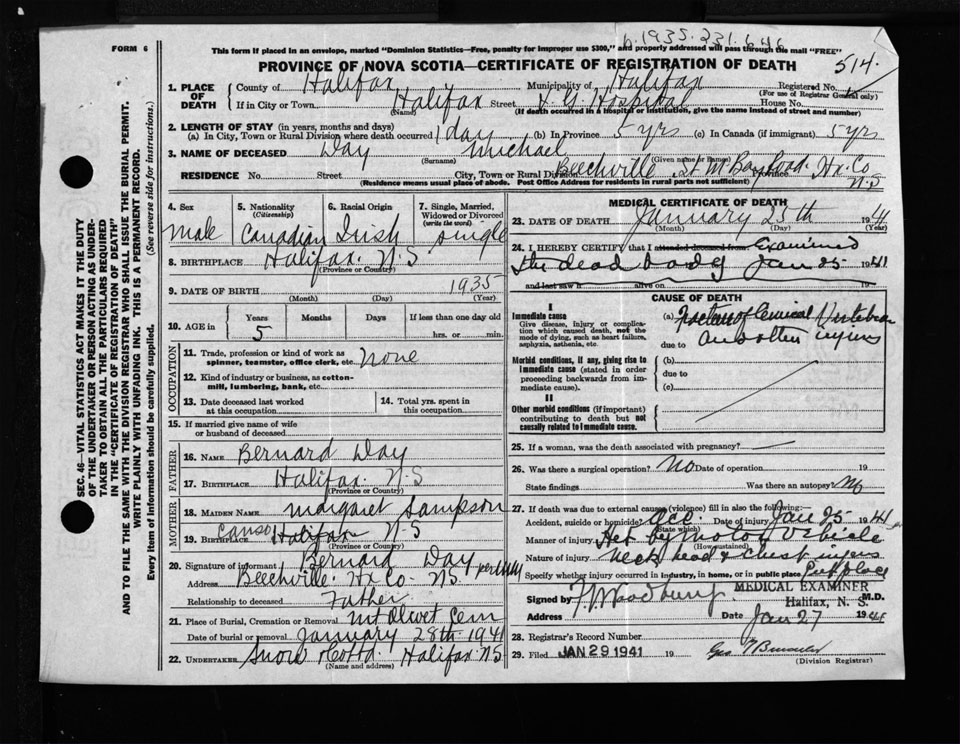 p.1935.231.646
FORM 6
This form if placed in an envelope, marked "Dominion Statistics—Free, penalty for improper use $300," and properly addressed will pass through the mail "FREE"
PROVINCE OF NOVA SCOTIA—CERTIFICATE OF REGISTRATION OF DEATH
514.
SEC. 46—VITAL STATISTICS ACT MAKES IT THE DUTY
OF THE UNDERTAKER OR PERSON ACTING AS UNDER-
TAKER TO OBTAIN ALL THE PARTICULARS REQUIRED
IN THE "CERTIFICATE OF REGISTRATION OF DEATH"
AND TO FILE THE SAME WITH THE DIVISION REGISTRAR WHO SHALL ISSUE THE BURIAL PERMIT.
WRITE PLAINLY WITH UNFADING INK. THIS IS A PERMANENT RECORD.
Every item of Information should be carefully supplied. (See reverse side for instructions.)
1. PLACE OF DEATH
County of Halifax Municipality of Halifax Registered No.
(For use of Registrar General only)
If in City or Town Halifax Street V. G. Hospital House No.
(Name) (If death occurred in a hospital or institution, give the name instead of street and number)
2. LENGTH OF STAY (in years, months and days)
(a) In City, Town or Rural Division where death occurred 1 day (b) In Province 5 yrs (c) In Canada (if immigrant) 5 yrs
3. NAME OF DECEASED Day Michael
(Surname) (Given name or Names)
RESIDENCE No. Street City, Town or Rural Division Beechville St M Bay Road Province Hx. Co N.S
(Residence means usual place of abode. Post Office Address for residents in rural parts not sufficient)
4. Sex
male
5. Nationality
(Citizenship)
Canadian
6. Racial Origin
Irish
7. Single, Married,
Widowed or Divorced
(write the word)
single
8. BIRTHPLACE Halifax N.S
(Province or Country)
9. DATE OF BIRTH 1935
(Month) (Day) (Year)
10. AGE in Years Months Days If less than one day
5 hrs. or min.
OCCUPATION
11. Trade, profession or kind of work as
spinner, teamster, office clerk, etc. None
12. Kind of industry or business, as cotton-
mill, lumbering, bank, etc.
13. Date deceased last worked
at this occupation
14. Total yrs. spent in
this occupation
15. If married give name of wife
or husband of deceased
FATHER
16. NAME Bernard Day
17. BIRTHPLACE Halifax. N.S
(Province or Country)
MOTHER
18. MAIDEN NAME Margaret Sampson
19. BIRTHPLACE Canso Halifax N S
(Province or Country)
20. Signature of informant Bernard Day per
Address Beechville. Hx Co. N.S.
Relationship to deceased Father
21. Place of Burial, Cremation or Removal Mt Olivet Cem
Date of burial or removal January 28th 1941
22. UNDERTAKER Snow & Co Ltd. Halifax NS
(Name and address)
MEDICAL CERTIFICATE OF DEATH
23. DATE OF DEATH January 25th 1941
(Month) (Day) (Year)
24. I HEREBY CERTIFY that I attended deceased from Examined
the dead body Jan 25 1941
and last saw h alive on 19
CAUSE OF DEATH
I
Immediate cause
Give disease, injury or complica-
tion which caused death, not the
mode of dying, such as heart failure,
asphyxia, asthenia, etc.
(a) Fracture of Cervical Vertebrae
and other injuries
due to
Morbid conditions, if any, giving rise to
immediate cause (stated in order
proceeding backwards from im-
mediate cause).
(b)
due to
(c)
II
Other morbid conditions (if important)
contributing to death but not
causally related to immediate cause.
25. If a woman, was the death associated with pregnancy?
26. Was there a surgical operation? No Date of operation 19
State findings Was there an autopsy? No
27. If death was due to external causes (violence) fill in also the following:
Accident, suicide or homicide? Acc Date of injury Jan 25 1941
(State which)
Manner of injury Hit by motor Vehicle
(How sustained)
Nature of injury neck head & chest injuries
Specify whether injury occurred in industry, in home, or in public place Public place
MEDICAL EXAMINER
Halifax, N. S.
Signed by M.D.
Address Date Jan 27 1941
28. Registrar's Record Number
29. Filed JAN 29 1941 19
(Division Registrar)